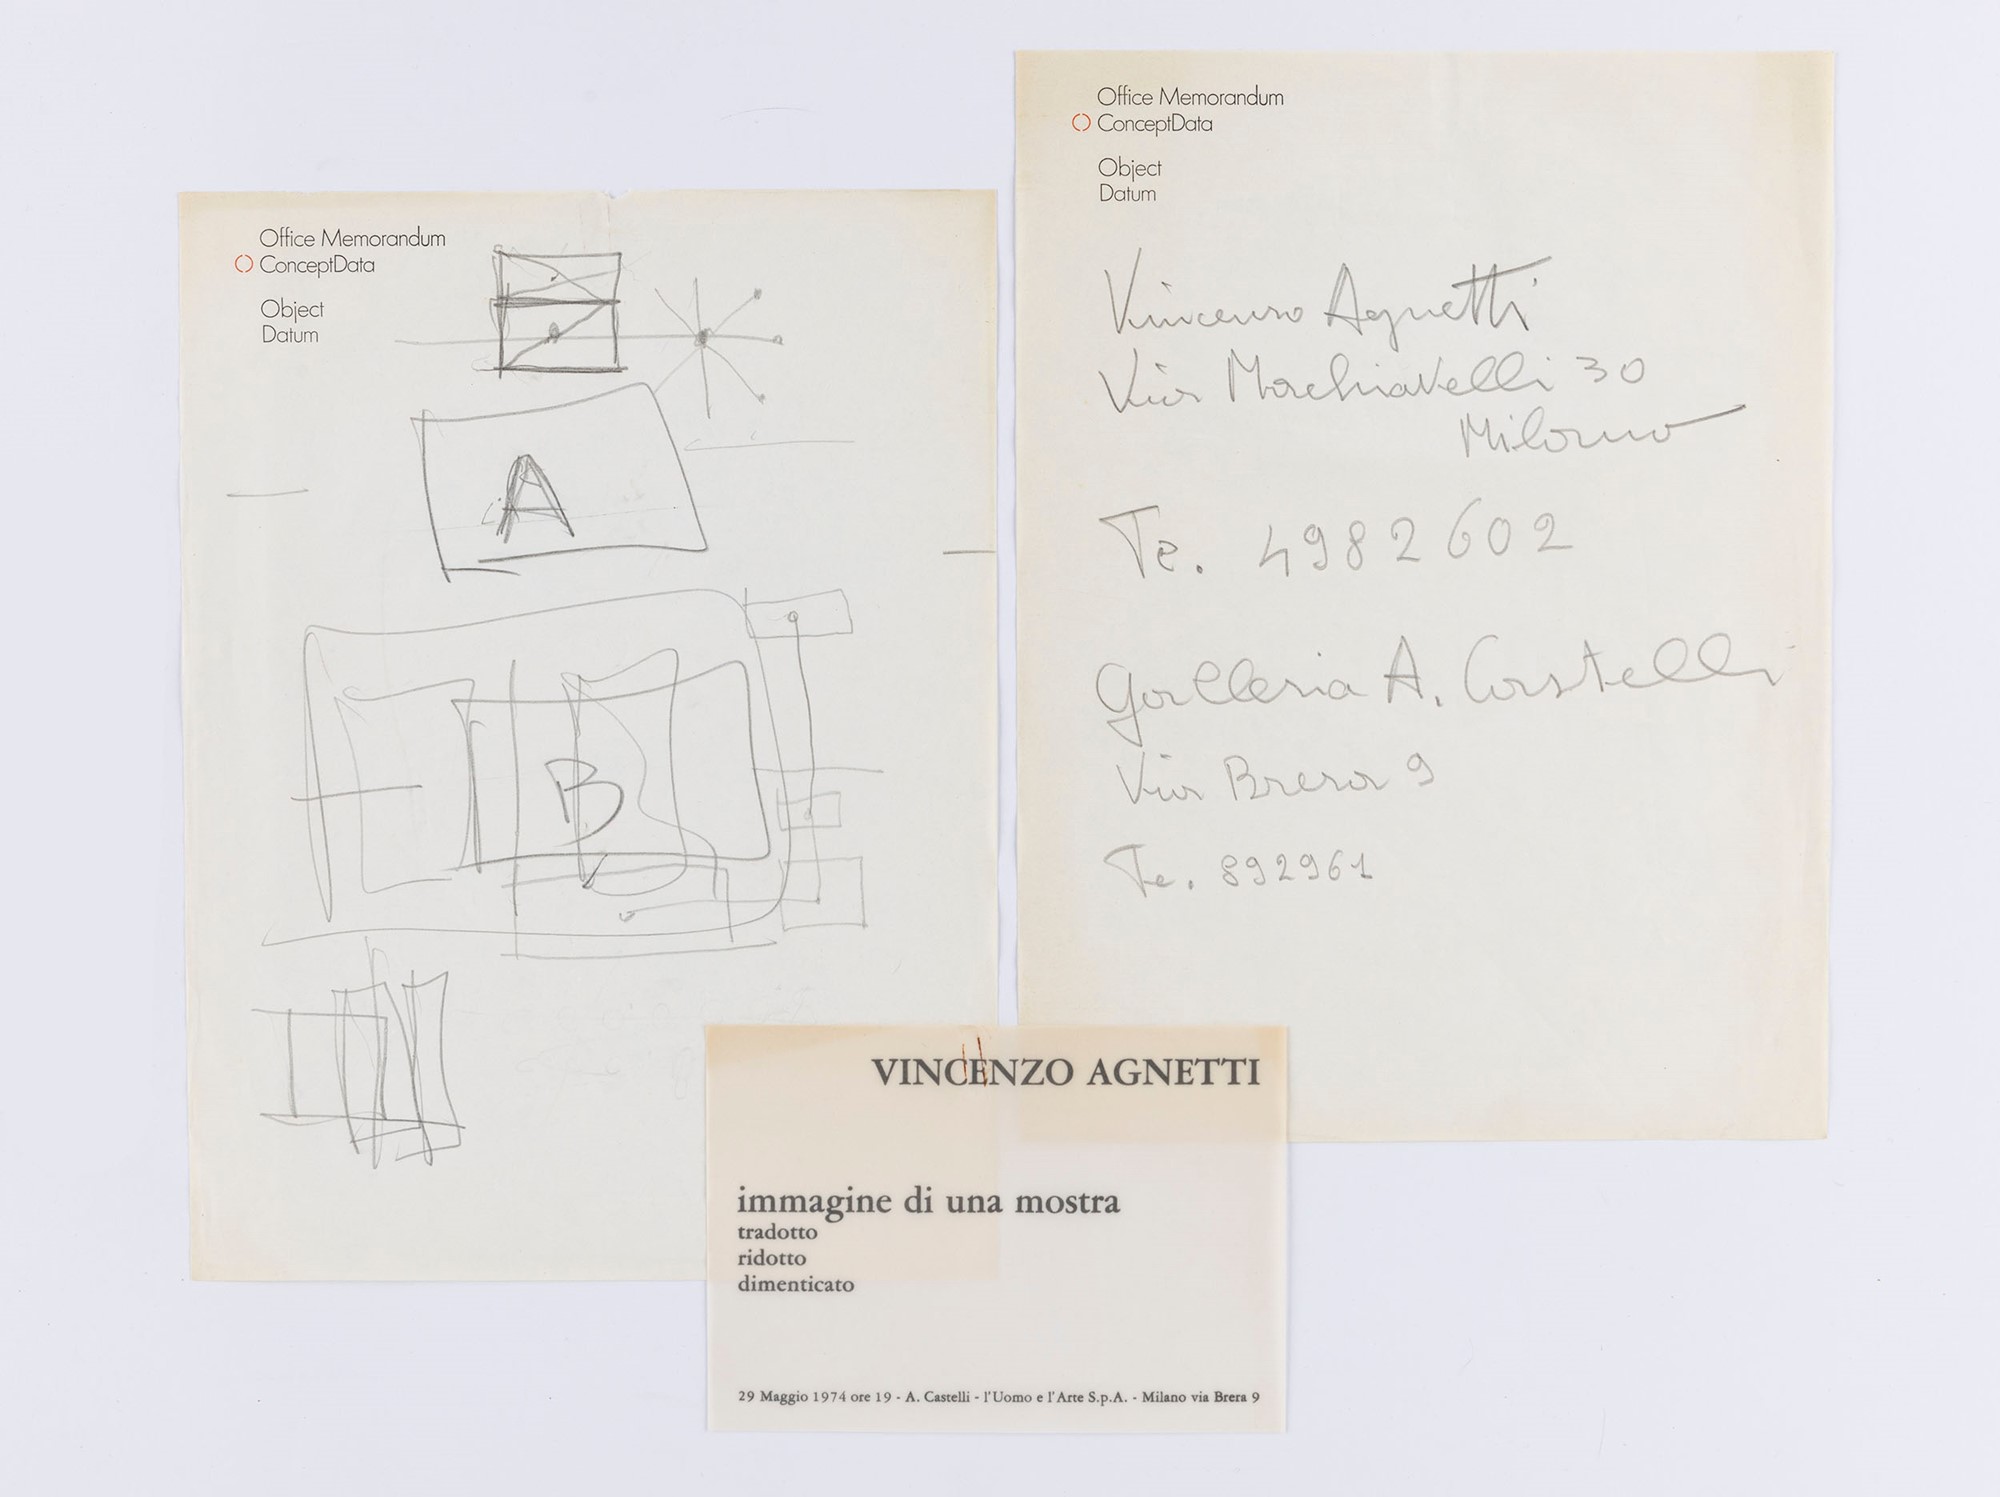 Office Memorandum
ConceptData
Object
Datum
A
B
Office Memorandum
ConceptData
Object
Datum
Vincenzo Agnetti
Via Machiavelli 30
Milano
Te. 4982602
Galleria A. Castelli
Via Brera 9
Te. 892961
VINCENZO AGNETTI
immagine di una mostra
tradotto
ridotto
dimenticato
29 Maggio 1974 ore 19 - A. Castelli - l'Uomo e l'Arte S.p.A. - Milano via Brera 9